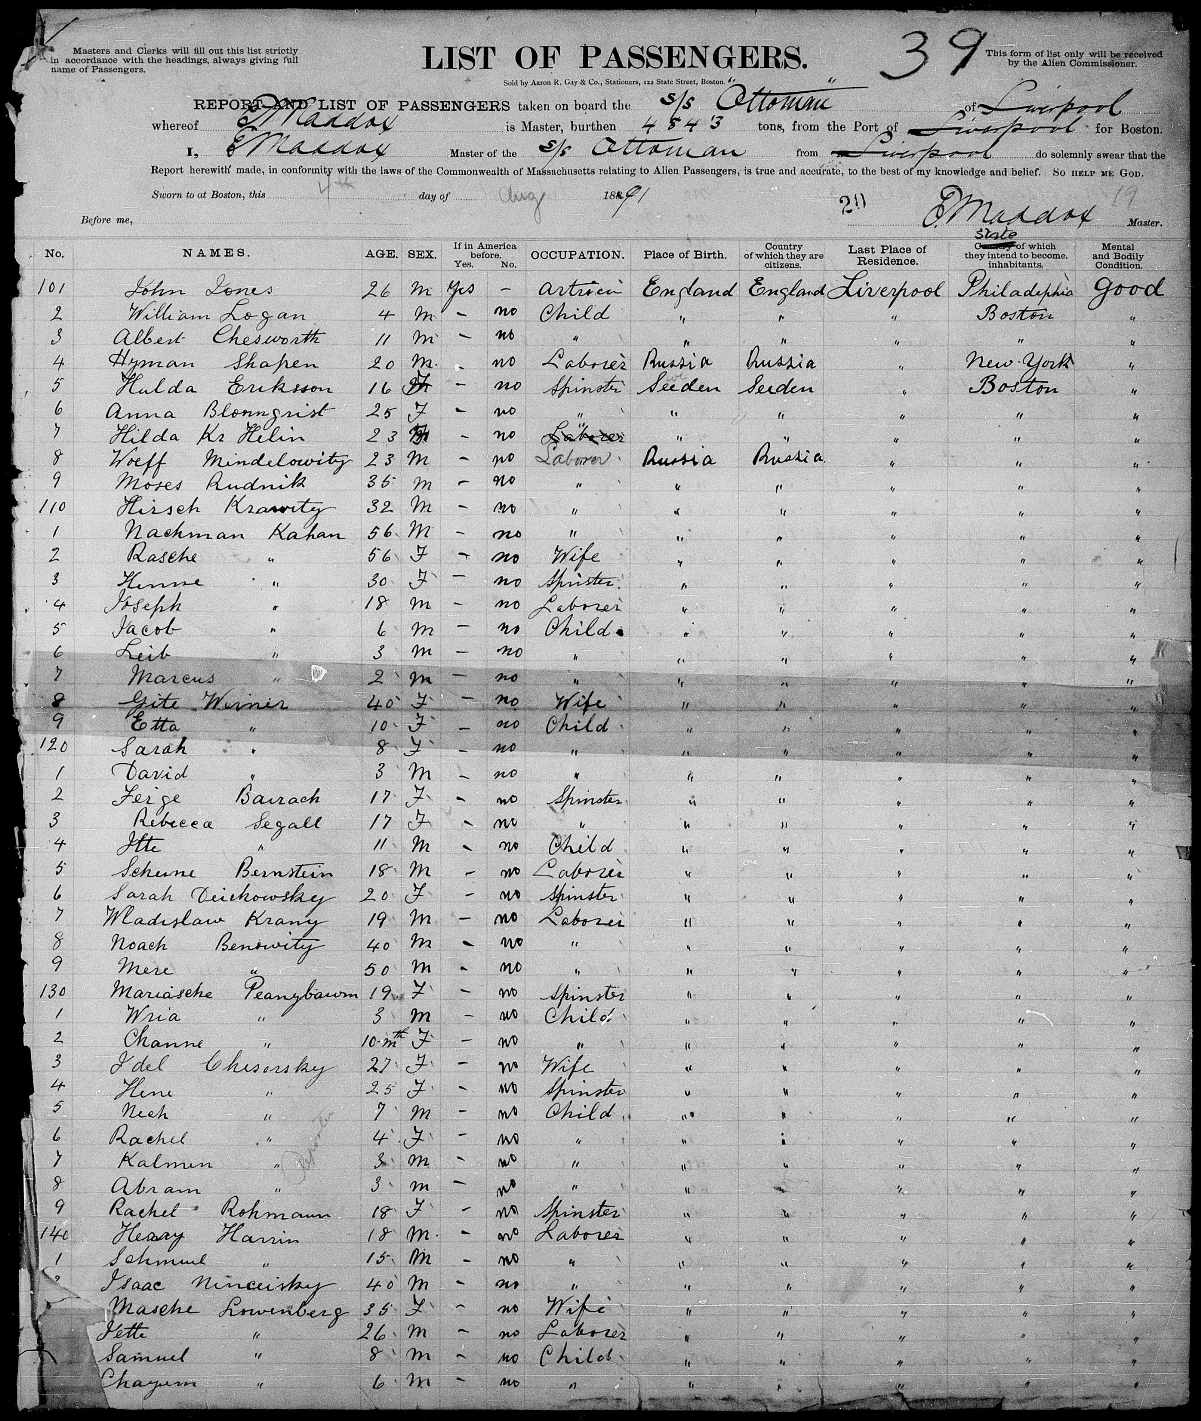 39
Masters and Clerks will fill out this list strictly
in accordance with the headings, always giving full
name of Passengers.
LIST OF PASSENGERS.
This form of list only will be received
by the Alien Commissioner.
Sold by Aaron R. Gay & Co., Stationers, 122 State Street, Boston.
REPORT AND LIST OF PASSENGERS taken on board the s/s "Ottoman" of Liverpool
whereof E Maddox is Master, burthen 4843 tons, from the Port of Liverpool for Boston.
I, E Maddox Master of the s/s Ottoman from Liverpool do solemnly swear that the
Report herewith made, in conformity with the laws of the Commonwealth of Massachusetts relating to Alien Passengers, is true and accurate, to the best of my knowledge and belief. SO HELP ME GOD.
Sworn to at Boston, this 4th day of Aug 1891
20 19
Before me, E. Maddox Master.
No. NAMES. AGE. SEX. If in America before. Yes. No. OCCUPATION. Place of Birth. Country of which they are citizens. Last Place of Residence. State of which they intend to become inhabitants. Mental and Bodily Condition.
101 John Jones 26 M Yes - England England Liverpool Philadephia Good
2 William Logan 4 M - no Child " " " Boston "
3 Albert Chesworth 11 M - no " " " " " "
4 Hyman Shapen 20 M. - no Laborer Russia Russia " New York "
5 Hulda Eriksson 16 F - no Spinster Seeden Seeden " Boston "
6 Anna Blomnqrist 25 F - no " " " " " "
7 Hilda Kr Helin 23 - no Laborer " " " " "
8 Woeff Mindelowity 23 M - no Laborer Russia Russia " " "
9 Moses Rudnik 35 M - no " " " " " "
110 Hirsch Krawity 32 M - no " " " " " "
1 Nachman Kahan 56 M - no " " " " " "
2 Rasche " 56 F - no Wife " " " " "
3 Hinne " 30 F - no Spinster " " " " "
4 Joseph " 18 M - no Laborer " " " " "
5 Jacob " 6 M - no Child " " " " "
6 Leib " 3 M - no " " " " " "
7 Marcus " 2 M - no " " " " " "
8 Gite Wirner 40 F - no Wife " " " " "
9 Etta " 10 F - no Child " " " " "
120 Sarah " 8 F - no " " " " " "
1 David " 3 M - no " " " " " "
2 Feige Bairach 17 F - no Spinster " " " " "
3 Rebecca Segall 17 F - no " " " " " "
4 Itte " 11 M - no Child " " " " "
5 Scheine Bernstein 18 M - no Laborer " " " " "
6 Sarah Deichowsky 20 F - no Spinster " " " " "
7 Wladislaw Krany 19 M - no Laborer " " " " "
8 Noach Benowity 40 M - no " " " " " "
9 Mere " 50 M - no " " " " " "
130 Mariasche Peanybawm 19 F - no Spinster " " " " "
1 Wria " 3 M - no Child " " " " "
2 Channe " 10 mth F - no " " " " " "
3 Idel Chisorsky 27 F - no Wife " " " " "
4 Hene " 25 F - no Spinster " " " " "
5 Nech " 7 M - no Child " " " " "
6 Rachel " 4 F - no " " " " " "
7 Kalmen " 3 M - no " " " " " "
8 Abram " 3 M - no " " " " " "
9 Rachel Rohmann 18 F - no Spinster " " " " "
140 Henry Harrin 18 M. - no Laborer " " " " "
1 Schmuel " 15 M - no " " " " " "
Isaac Ninceisky 40 M - no " " " " " "
Masche Lowenberg 35 F - no Wife " " " " "
Jette " 26 M - no Laborer " " " " "
Samuel " 8 M - no Child " " " " "
Chayem " 6 M - no " " " " " "